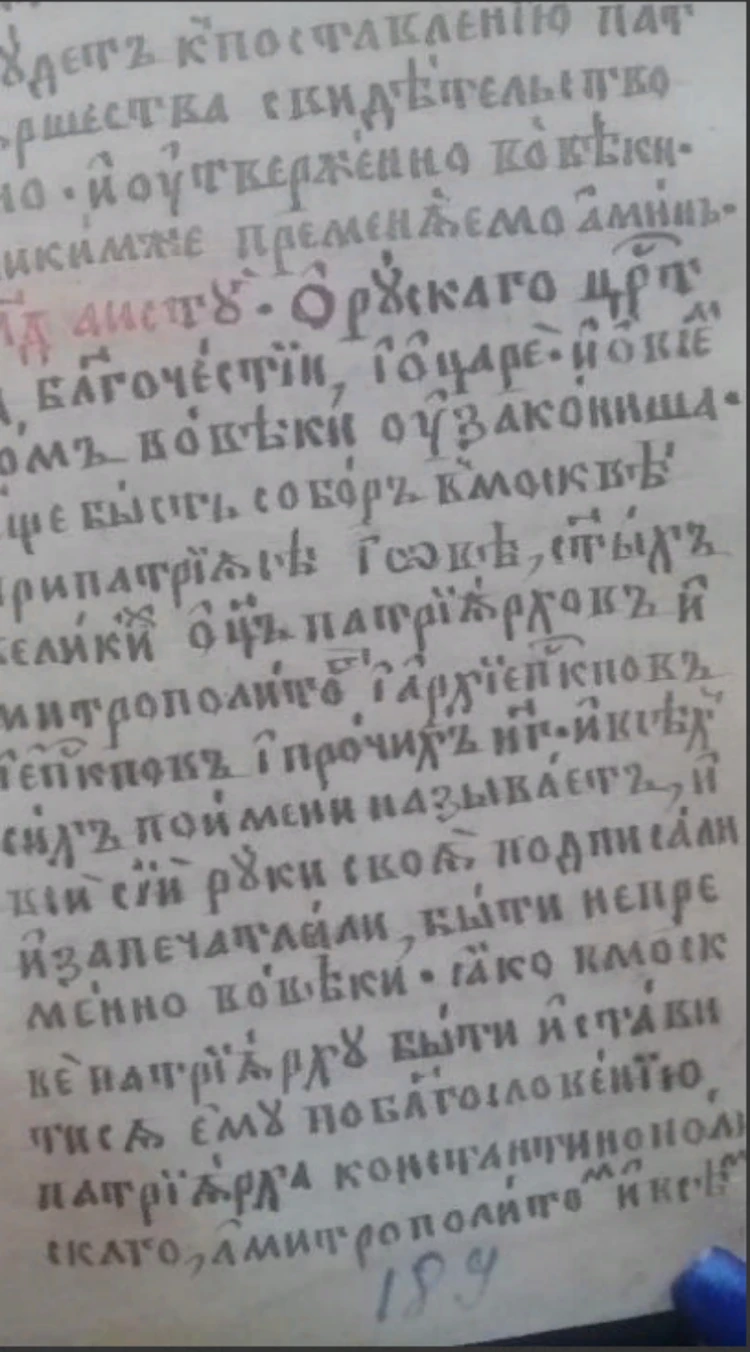 ꙋдетъ к̾поставленїю пат
ршества свидѣ́тельство
но · и҆ оу҆тверже́нно во́вѣки ·
ники́мже пременѧ́емо а҆ми́нь ·
листꙋ̀ · Ѡ҆ рꙋ́скаго црⷭ҇т
, бл҃гоче́стїи, і҆ ѡ҆царѐ · и҆ ѡ҆кїе
о́мъ во́вѣки оу҆зако́ниша ·
ще бы́сть собо́ръ в̾москвѣ̀
припатрїѧ́сѣ і҆ѡвѣ, ст҃ы́хъ
вели́кй ѻ҆ц҃ъ патрїѧ́рховъ и҆
митрополи́тоⷡ҇ і҆ а҆рхїепⷭ҇кповъ
і҆ е҆пⷭ҇кповъ і҆ про́чихъ · и҆ всѣⷯ
си́хъ пои́мени называ́етъ, и҆
вси сїи рꙋ́ки своѧ̀ подписа́ли
и҆ запечатлѣ́ли, бы́ти непре
ме́нно во́вѣки · ꙗ҆́ко вмоск
вѐ патрїѧ́рхꙋ бы́ти и҆ ста́ви
тисѧ є҆мꙋ̀ по бл҃гослове́нїю
патрїѧ́рха константинопо́л
скаго, а҆ митрополи́тоⷨ и҆ всѣⷨ
189